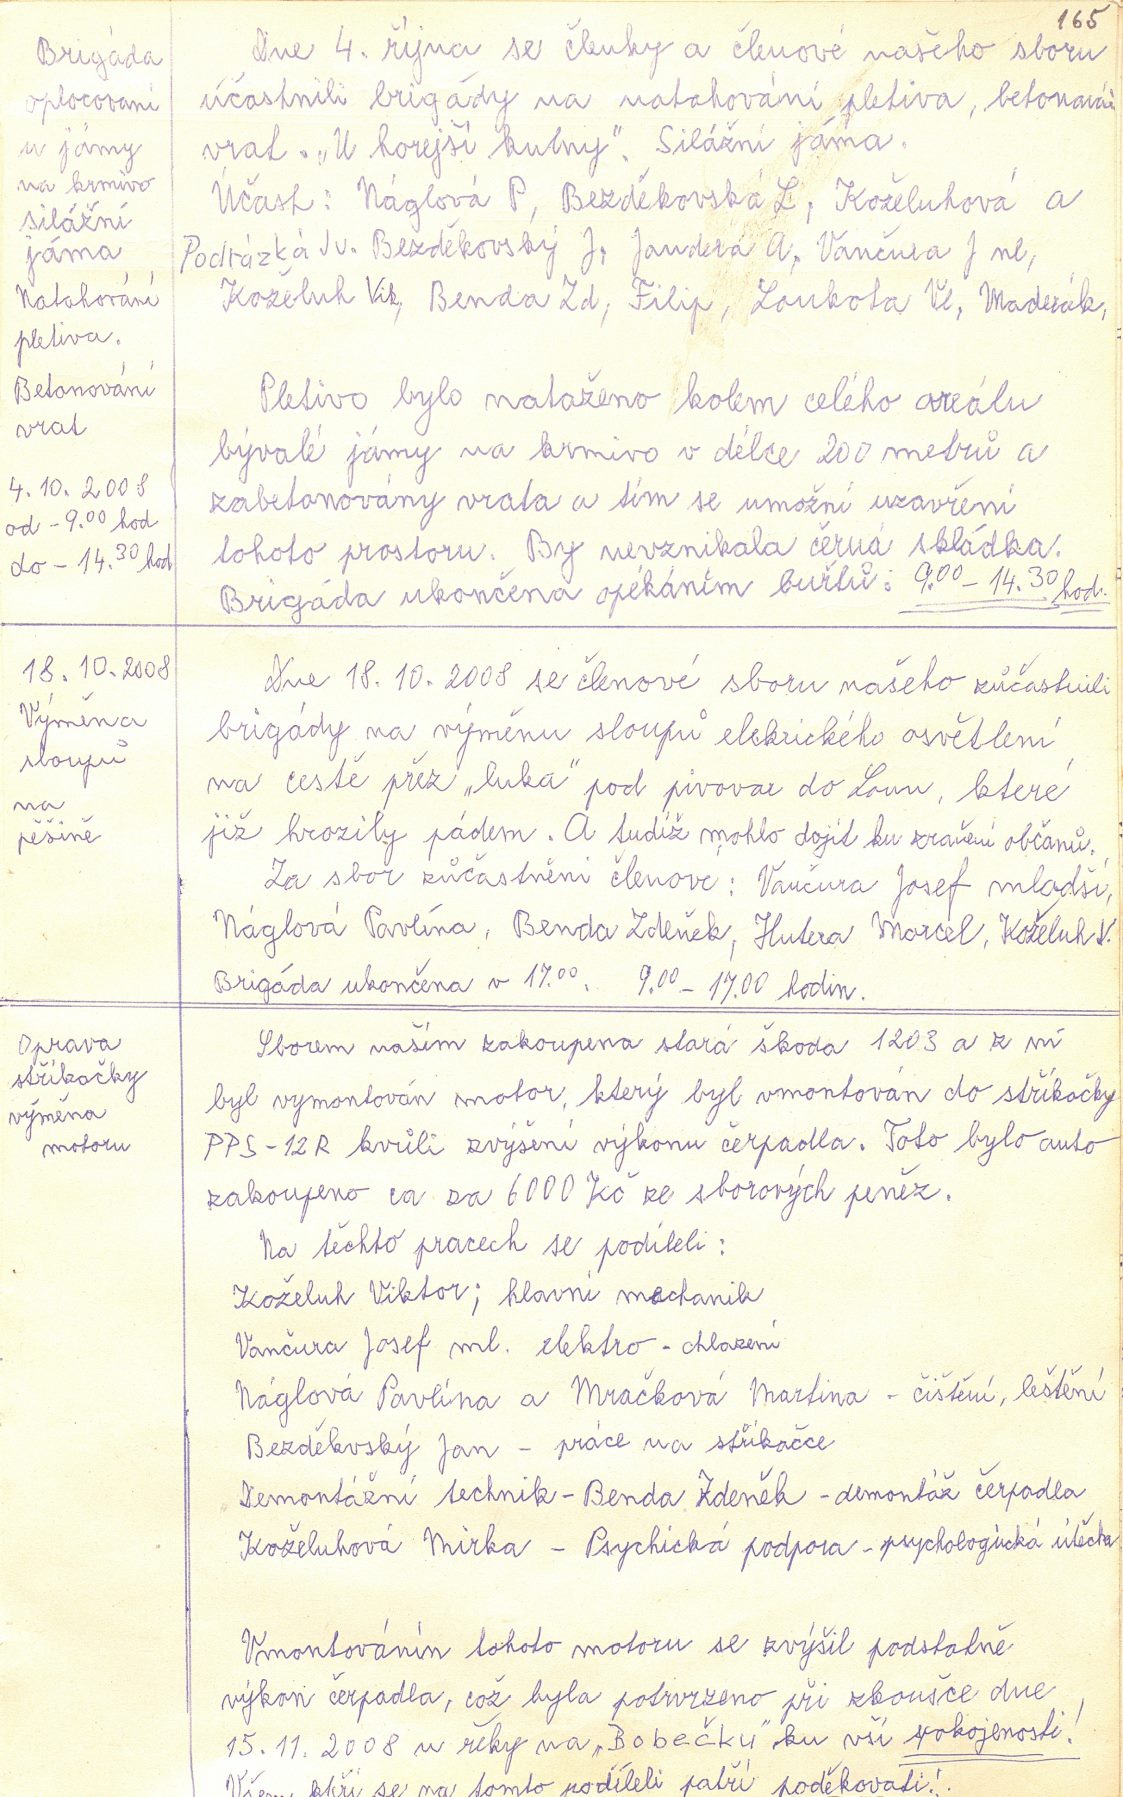 165
Brigáda
oplocovaní
u jámy
na krmivo
silážní
jáma
Natahování
pletiva.
Betonování
vrat
4. 10. 2008
od - 9.00 hod
do - 14.30 hod
Dne 4. října se členky a členové našeho sboru
účastnili brigády na natahování pletiva, betonování
vrat. „U horejší kutny“. Silážní jáma.
Účast: Náglová P, Bezděkovská L, Koželuhová a
Podrázká Iv. Bezděkovský J, Jandera A, Vančura J ml,
Koželuh Vik, Benda Zd, Filip, Loukota Vl, Maderák,
Pletivo bylo nataženo kolem celého areálu
bývalé jámy na krmivo v délce 200 metrů a
zabetonovány vrata a tím se umožní uzavření
tohoto prostoru. By nevznikala černá skládka.
Brigáda ukončena opékáním buřtů: 9.00 - 14.30 hod.
18. 10. 2008
Výměna
sloupů
na
pěšině
Dne 18. 10. 2008 se členové sboru našeho zůčastnili
brigády na výměnu sloupů elekrického osvětlení
na cestě přez „luka“ pod pivovar do Loun, které
již hrozily pádem. A tudíž mohlo dojít ku zranění občanů.
Za sbor zůčastnění členove: Vančura Josef mladší,
Náglová Pavlína, Benda Zdeněk, Hutera Marcel, Koželuh V.
Brigáda ukončena v 17.00. 9.00 - 17.00 hodin.
Oprava
stříkačky
výměna
motoru
Sborem naším zakoupena stará škoda 1203 a z ní
byl vymontován motor, který byl vmontován do stříkačky
PPS - 12 R kvůli zvýšení výkonu čerpadla. Toto bylo auto
zakoupeno ca za 6000 Kč ze sborových peněz.
Na těchto pracech se podíleli:
Koželuh Viktor; hlavní mechanik
Vančura Josef ml. elektro - chlazení
Náglová Pavlína a Mračková Martina - čištění, leštění
Bezděkvský Jan - práce na stříkačce
Demontážní technik - Benda Zdeněk - demontáž čerpadla
Koželuhová Mirka - Psychická podpora - psychologická útěcha
Vmontováním tohoto motoru se zvýšil podstatně
výkon čerpadla, což byla potvrzeno při zkoušce dne
15. 11. 2008 u řeky na „Bobečku“ ku vší spokojenosti!
Všem kteří se na tomto podíleli patří poděkovati!.